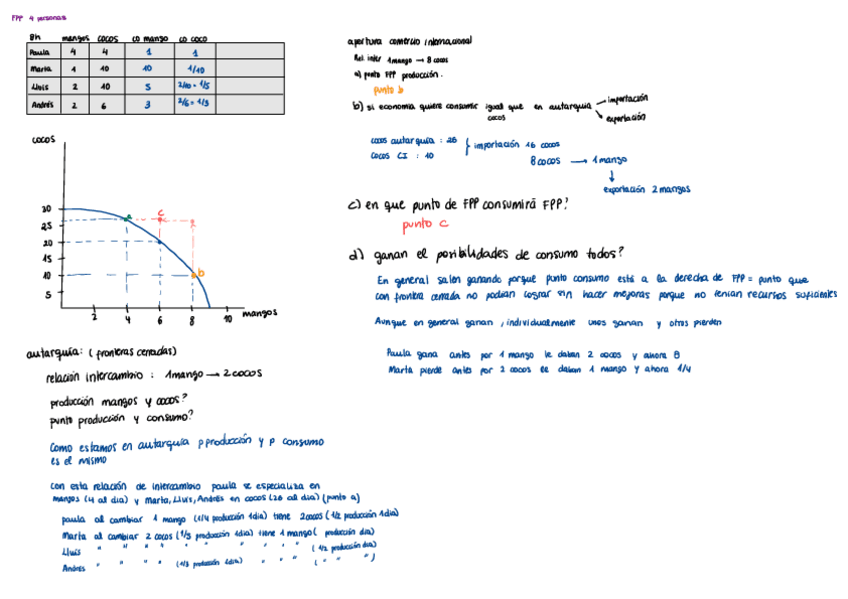 FPP 4 personas
8h mangos cocos co mango co coco
Paula 4 4 1 1
Marta 1 10 10 1/10
Lluis 2 10 5 2/10 = 1/5
Andrés 2 6 3 2/6 = 1/3
cocos
30
25
20
15
10
5
a
c
b
2 4 6 8 10 mangos
autarquía: (fronteras cerradas)
relación intercambio : 1 mango → 2 cocos
producción mangos y cocos?
punto producción y consumo?
Como estamos en autarquía p producción y p consumo
es el mismo
con esta relación de intercambio paula se especializa en
mangos (4 al dia) y marta, Lluis, Andrés en cocos (26 al dia) (punto a)
paula al cambiar 1 mango (1/4 producción 1dia) tiene 2cocos (1/2 producción 1dia)
Marta al cambiar 2 cocos (1/5 producción 1dia) tiene 1 mango ( producción dia)
Lluis " " " " " " " " " (1/2 producción dia)
Andrés " " " " (1/3 producción 1dia) " " " ( " " )
apertura comercio internacional
Rel inter 1mango → 8 cocos
a) punto FPP producción.
punto b
b) si economia quiere consumir igual que en autarquia
cocos
importación
exportación
cocos autarquía : 26
cocos CI : 10
importación 16 cocos
8 cocos → 1 mango
exportación 2 mangos
c) en que punto de FPP consumirá FPP?
punto c
d) ganan el posibilidades de consumo todos?
En general salen ganando porque punto consumo está a la derecha de FPP = punto que
con frontera cerrada no podian lograr sin hacer mejoras porque no tenian recursos suficientes
Aunque en general ganan , individualmente unos ganan y otros pierden
Paula gana antes por 1 mango le daban 2 cocos y ahora 8
Marta pierde antes por 2 cocos le daban 1 mango y ahora 1/4